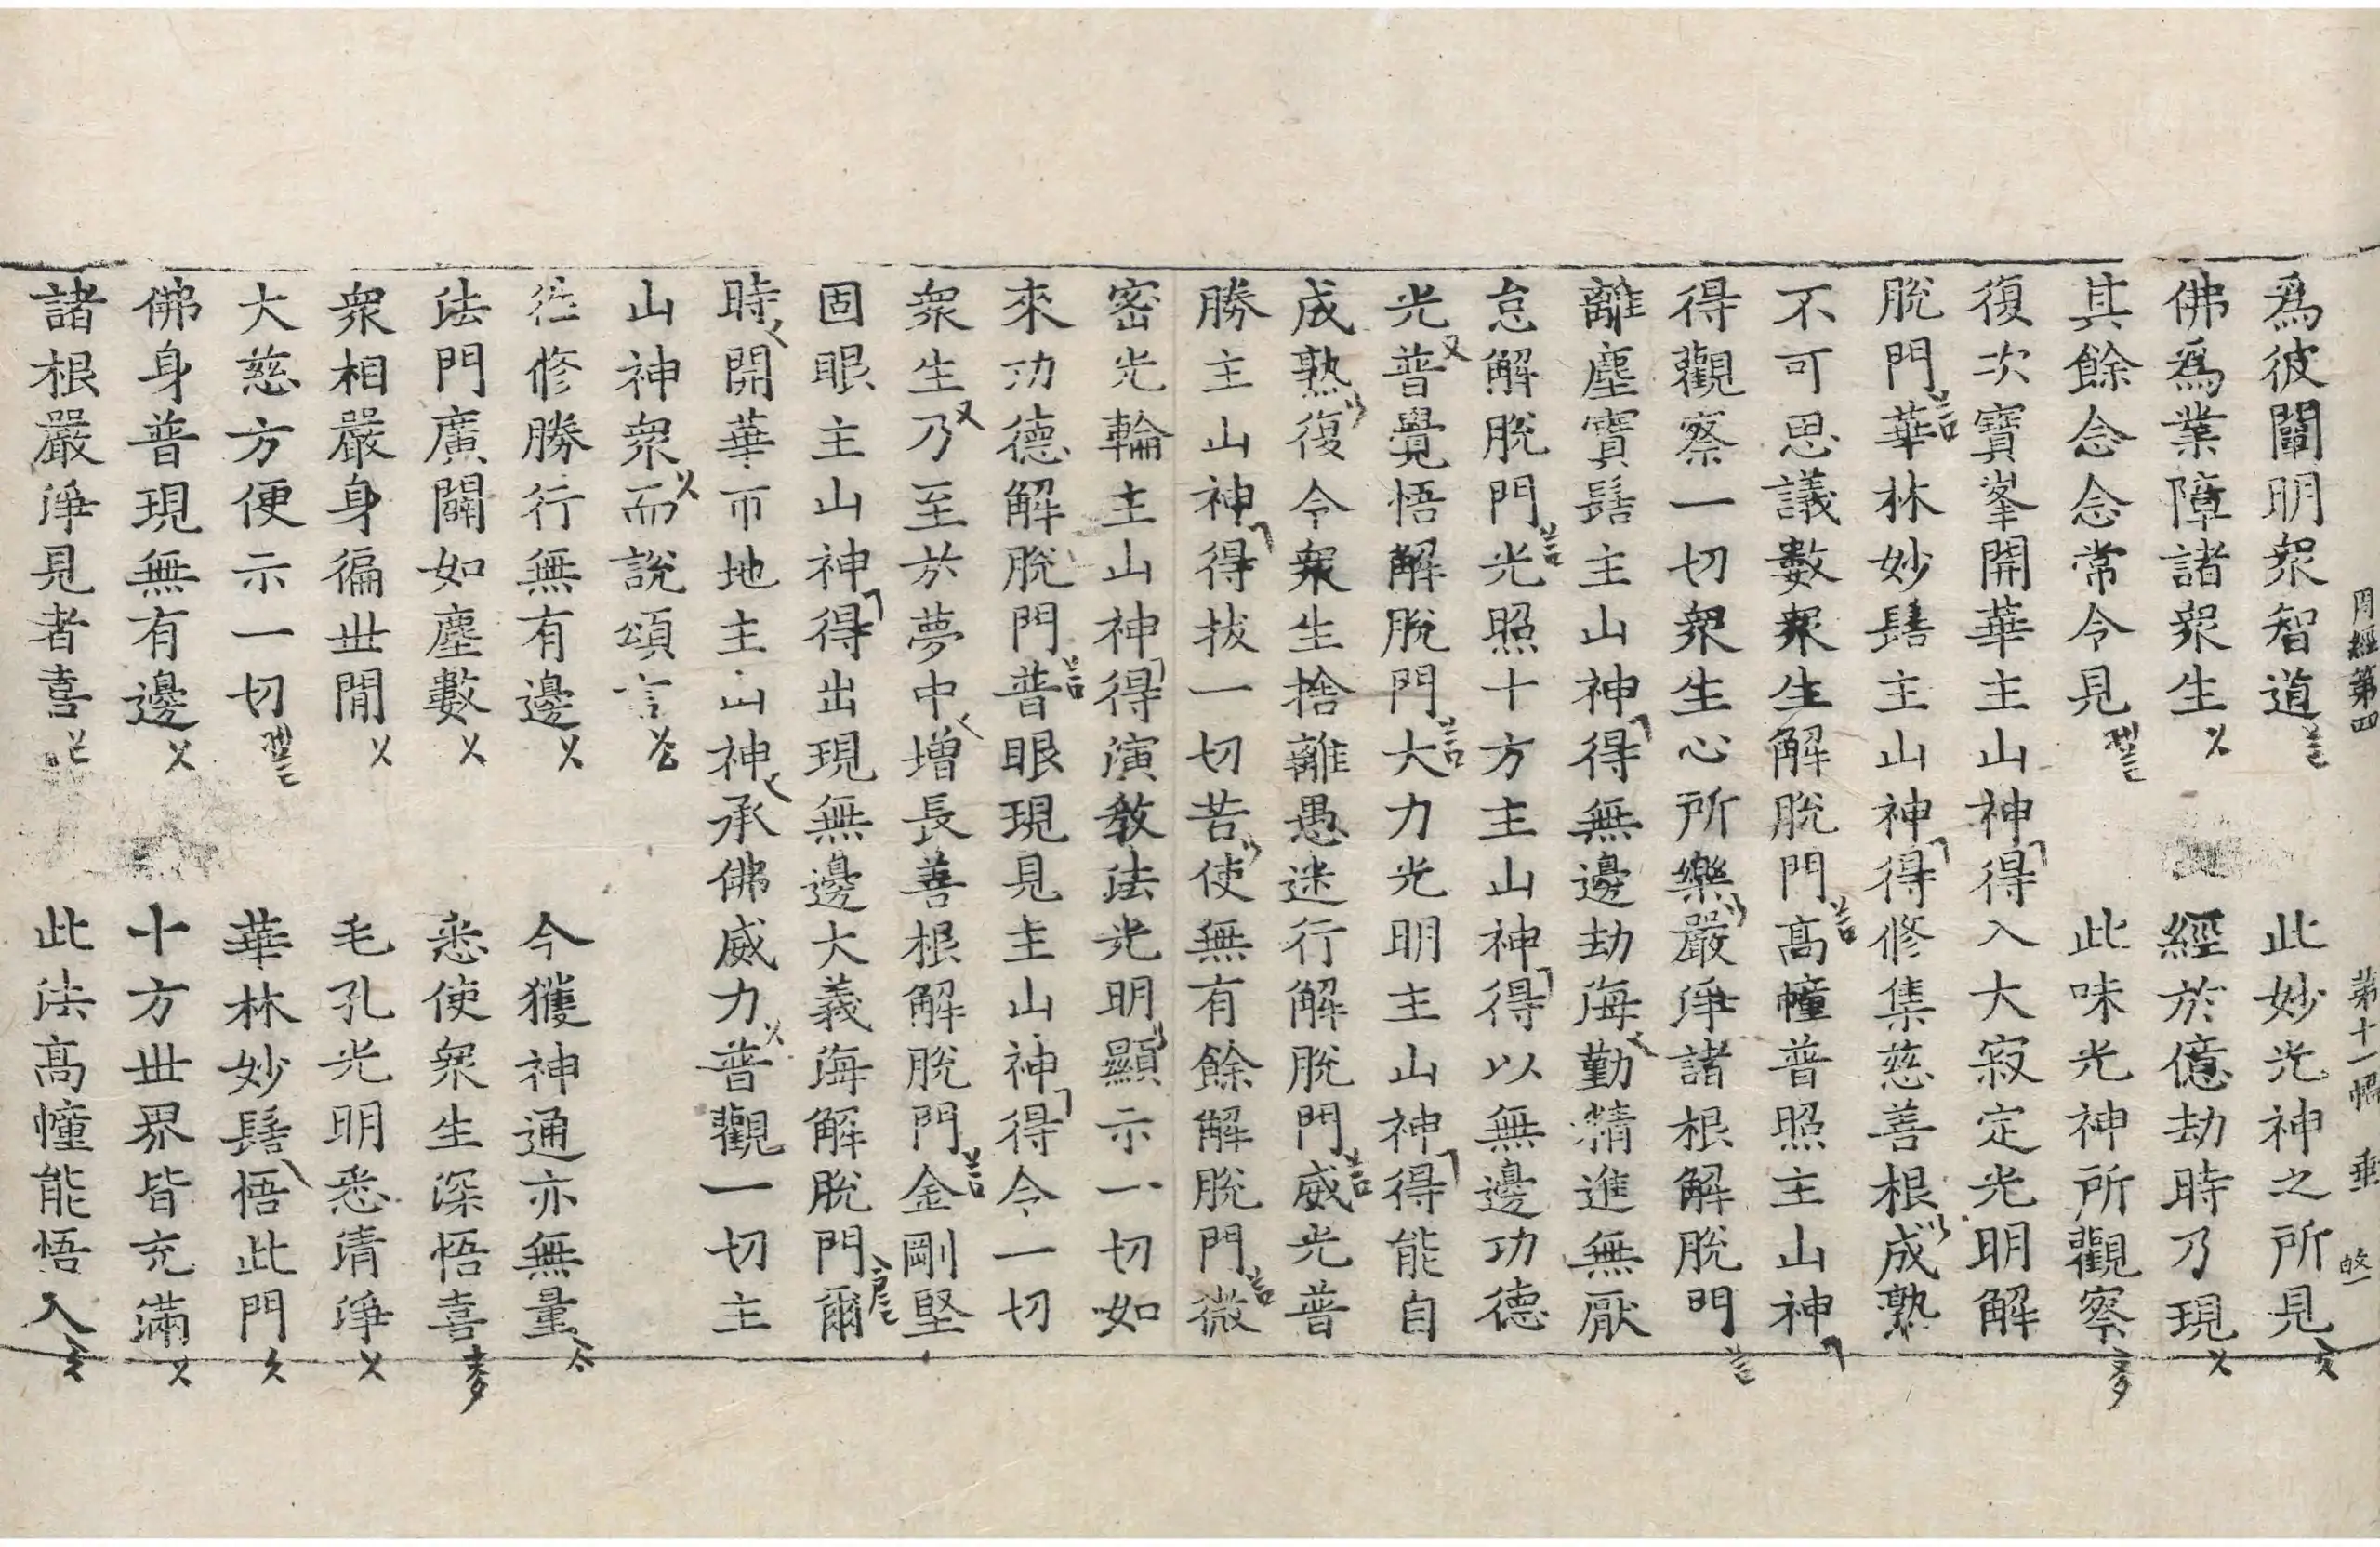 周經第四　第十一幅　垂
為彼闡明衆智道　此妙光神之所見
佛為業障諸衆生　經於億劫時乃現
其餘念念常令見　此味光神所觀察
復次寶峯開華主山神得入大寂定光明解
脫門華林妙髻主山神得修集慈善根成熟
不可思議數衆生解脫門高幢普照主山神
得觀察一切衆生心所樂嚴淨諸根解脫門
離塵寶髻主山神得無邊劫海勤精進無厭
怠解脫門光照十方主山神得以無邊功德
光普覺悟解脫門大力光明主山神得能自
成熟復令衆生捨離愚迷行解脫門威光普
勝主山神得拔一切苦使無有餘解脫門微
密光輪主山神得演教法光明顯示一切如
來功德解脫門普眼現見主山神得令一切
衆生乃至於夢中增長善根解脫門金剛堅
固眼主山神得出現無邊大義海解脫門爾
時開華帀地主山神承佛威力普觀一切主
山神衆而說頌言
往修勝行無有邊　今獲神通亦無量
法門廣闢如塵數　悉使衆生深悟喜
衆相嚴身徧世間　毛孔光明悉清淨
大慈方便示一切　華林妙髻悟此門
佛身普現無有邊　十方世界皆充滿
諸根嚴淨見者喜　此法高幢能悟入